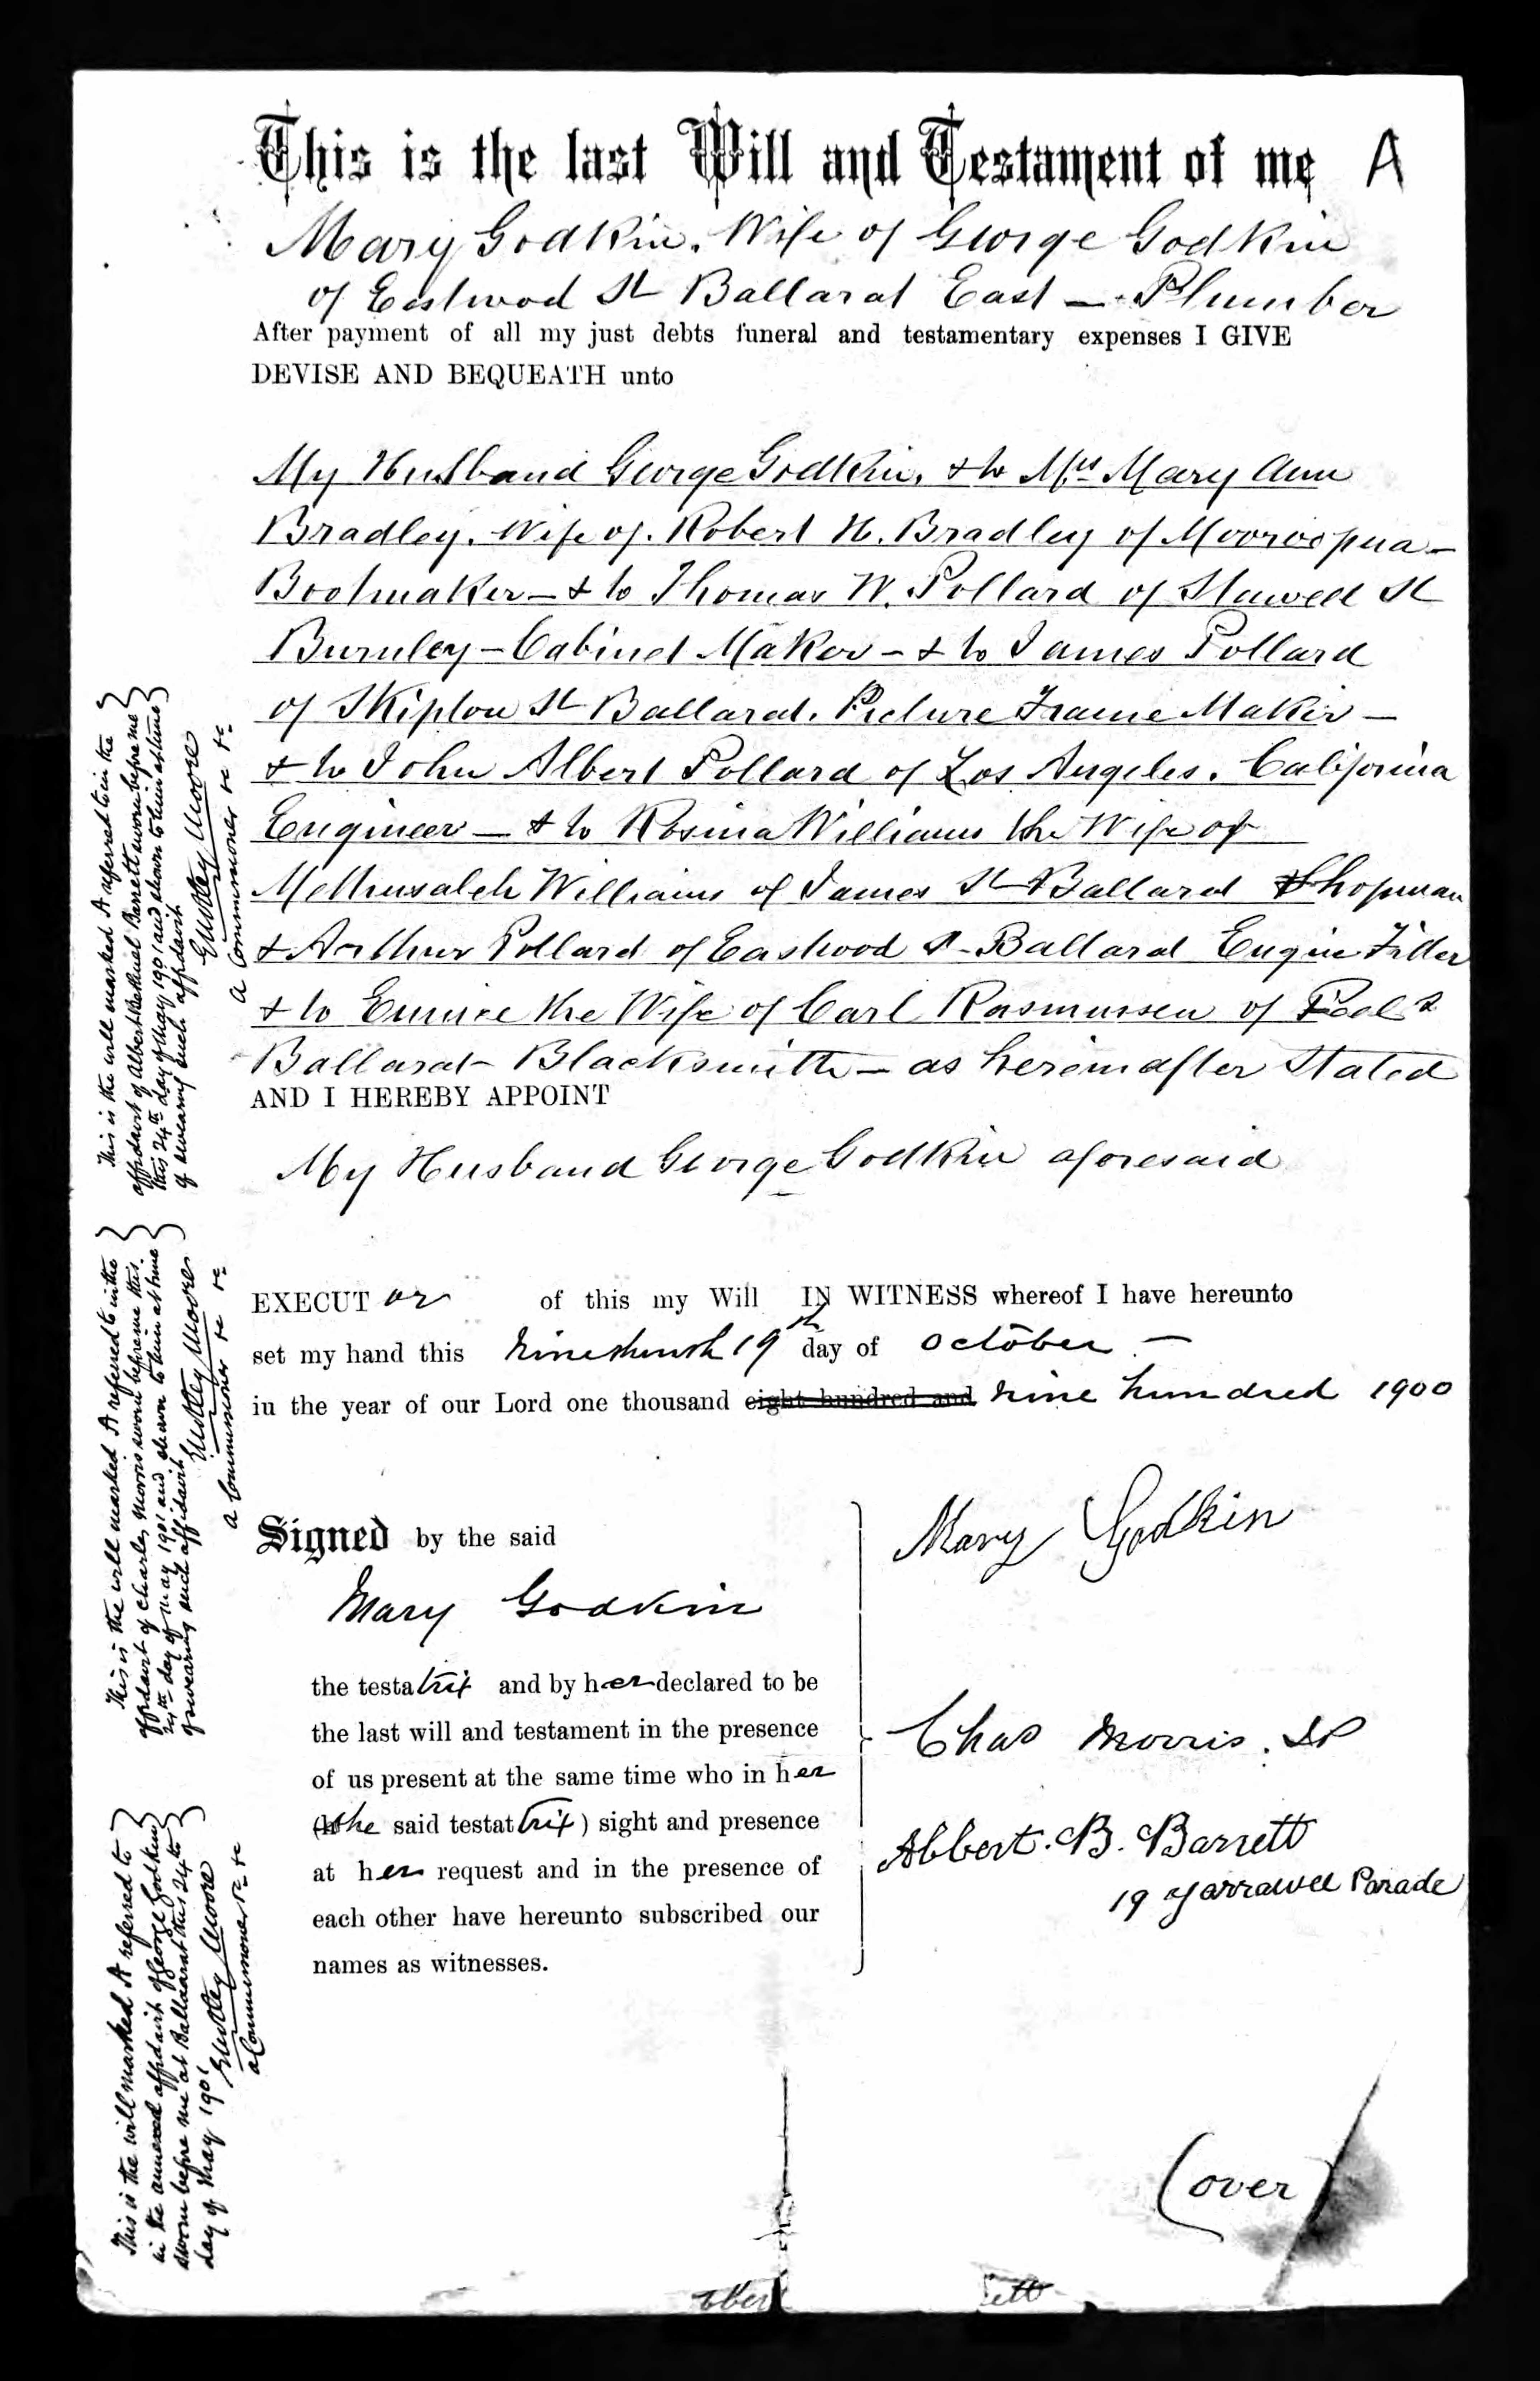 This is the last Will and Testament of me A
Mary Godkin. Wife of George Godkin
of Eastwood St Ballarat East — Plumber
After payment of all my just debts funeral and testamentary expenses I GIVE
DEVISE AND BEQUEATH unto
My Husband George Godkin. & to Mrs Mary Ann
Bradley. Wife of. Robert H. Bradley of Mooroopna —
Bootmaker — & to Thomas W. Pollard of Stawell St
Burnley — Cabinet Maker — & to James Pollard
of Skipton St Ballarat. Picture Frame Maker —
& to John Albert Pollard of Los Angeles. California
Engineer — & to Rosina Williams the Wife of
Methusaleh Williams of James St Ballarat Shopman
& Arthur Pollard of Eastwood St Ballarat Engine Fitter
& to Eunice the Wife of Carl Rasmussen of Peel St
Ballarat — Blacksmith — as hereinafter Stated
AND I HEREBY APPOINT
My Husband George Godkin aforesaid
EXECUT or of this my Will IN WITNESS whereof I have hereunto
set my hand this nineteenth 19th day of October —
in the year of our Lord one thousand eight hundred and nine hundred 1900
Signed by the said
Mary Godkin
Mary Godkin
the testatrix and by her declared to be
the last will and testament in the presence
of us present at the same time who in her
(the said testatrix) sight and presence
at her request and in the presence of
each other have hereunto subscribed our
names as witnesses.
Chas Morris. JP
Albert. B. Barrett
19 Yarrowee Parade
(over)
This is the will marked A referred to in the
affidavit of Albert Barrett sworn before me
this 24th day of May 1901 and shown to him at time
of swearing such affidavit
Moore
a Commissioner &c &c
This is the will marked A referred to in the
affidavit of Charles Morris sworn before me this
24th day of May 1901 and shown to him at time
of swearing such affidavit
Moore
a Commissioner &c &c
This is the will marked A referred to
in the annexed affidavit of George Godkin
sworn before me at Ballaarat this 24th
day of May 1901
Moore
a Commissioner &c &c